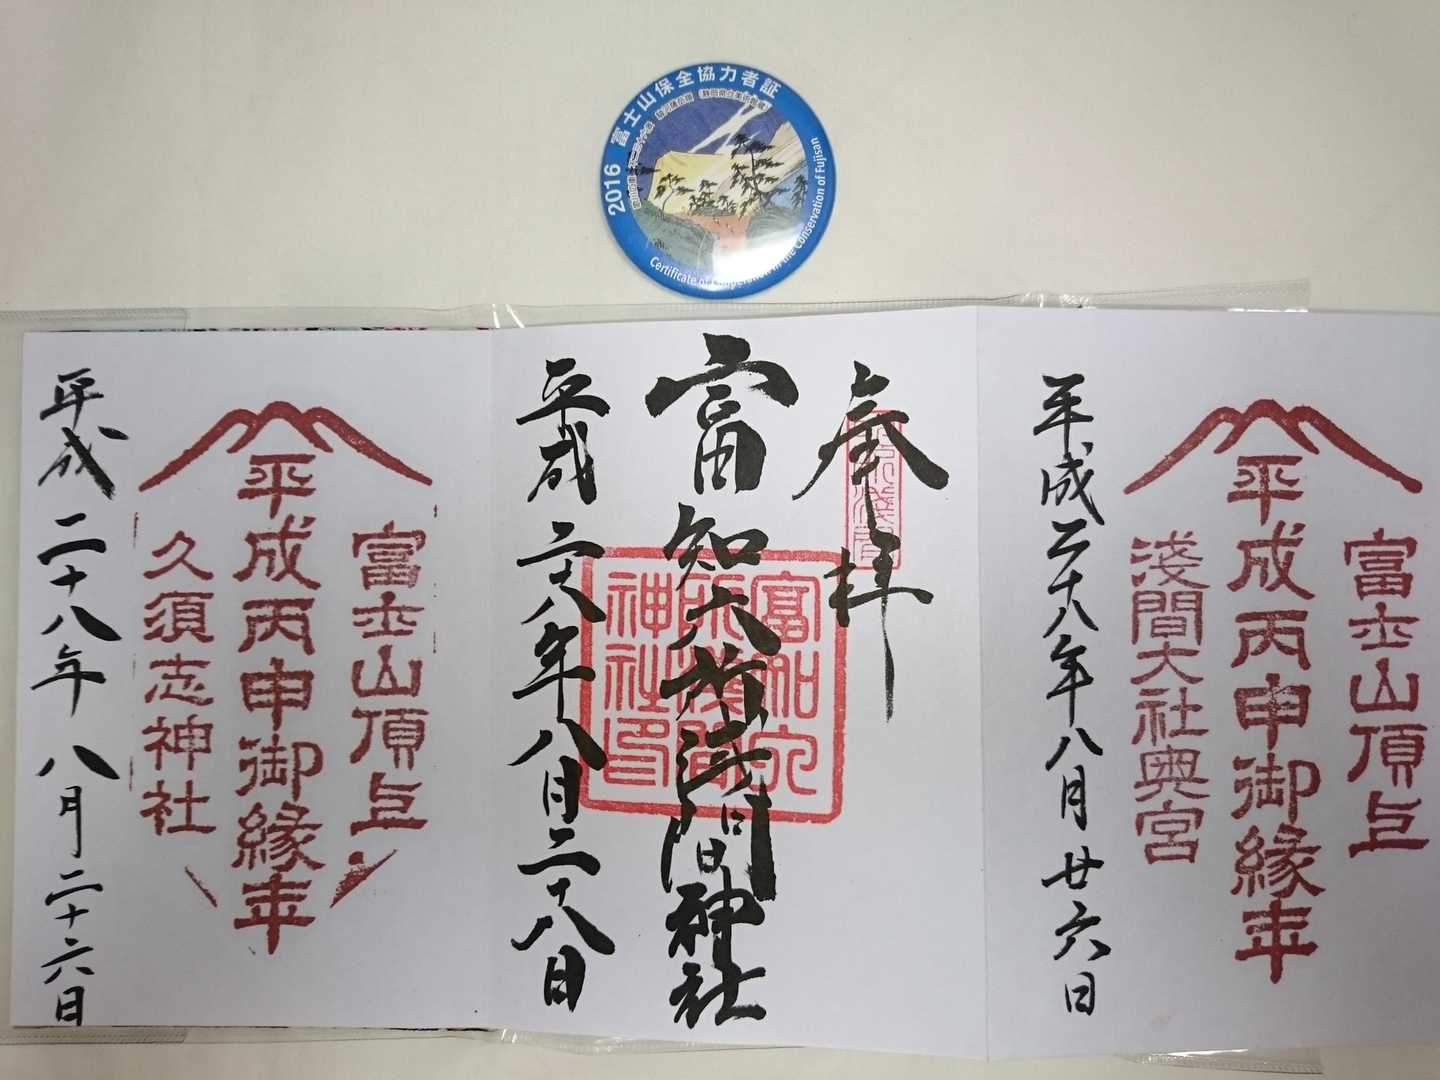 2016 富士山保全協力者証
Certificate of Cooperation in the Conservation of Fujisan
富士山頂上
平成丙申御縁年
浅間大社奥宮
平成二十八年八月廿六日
奉拝
富知六所浅間神社
富知六所浅間神社印
平成二十八年八月二十八日
富士山頂上
平成丙申御縁年
久須志神社
平成二十八年八月二十六日